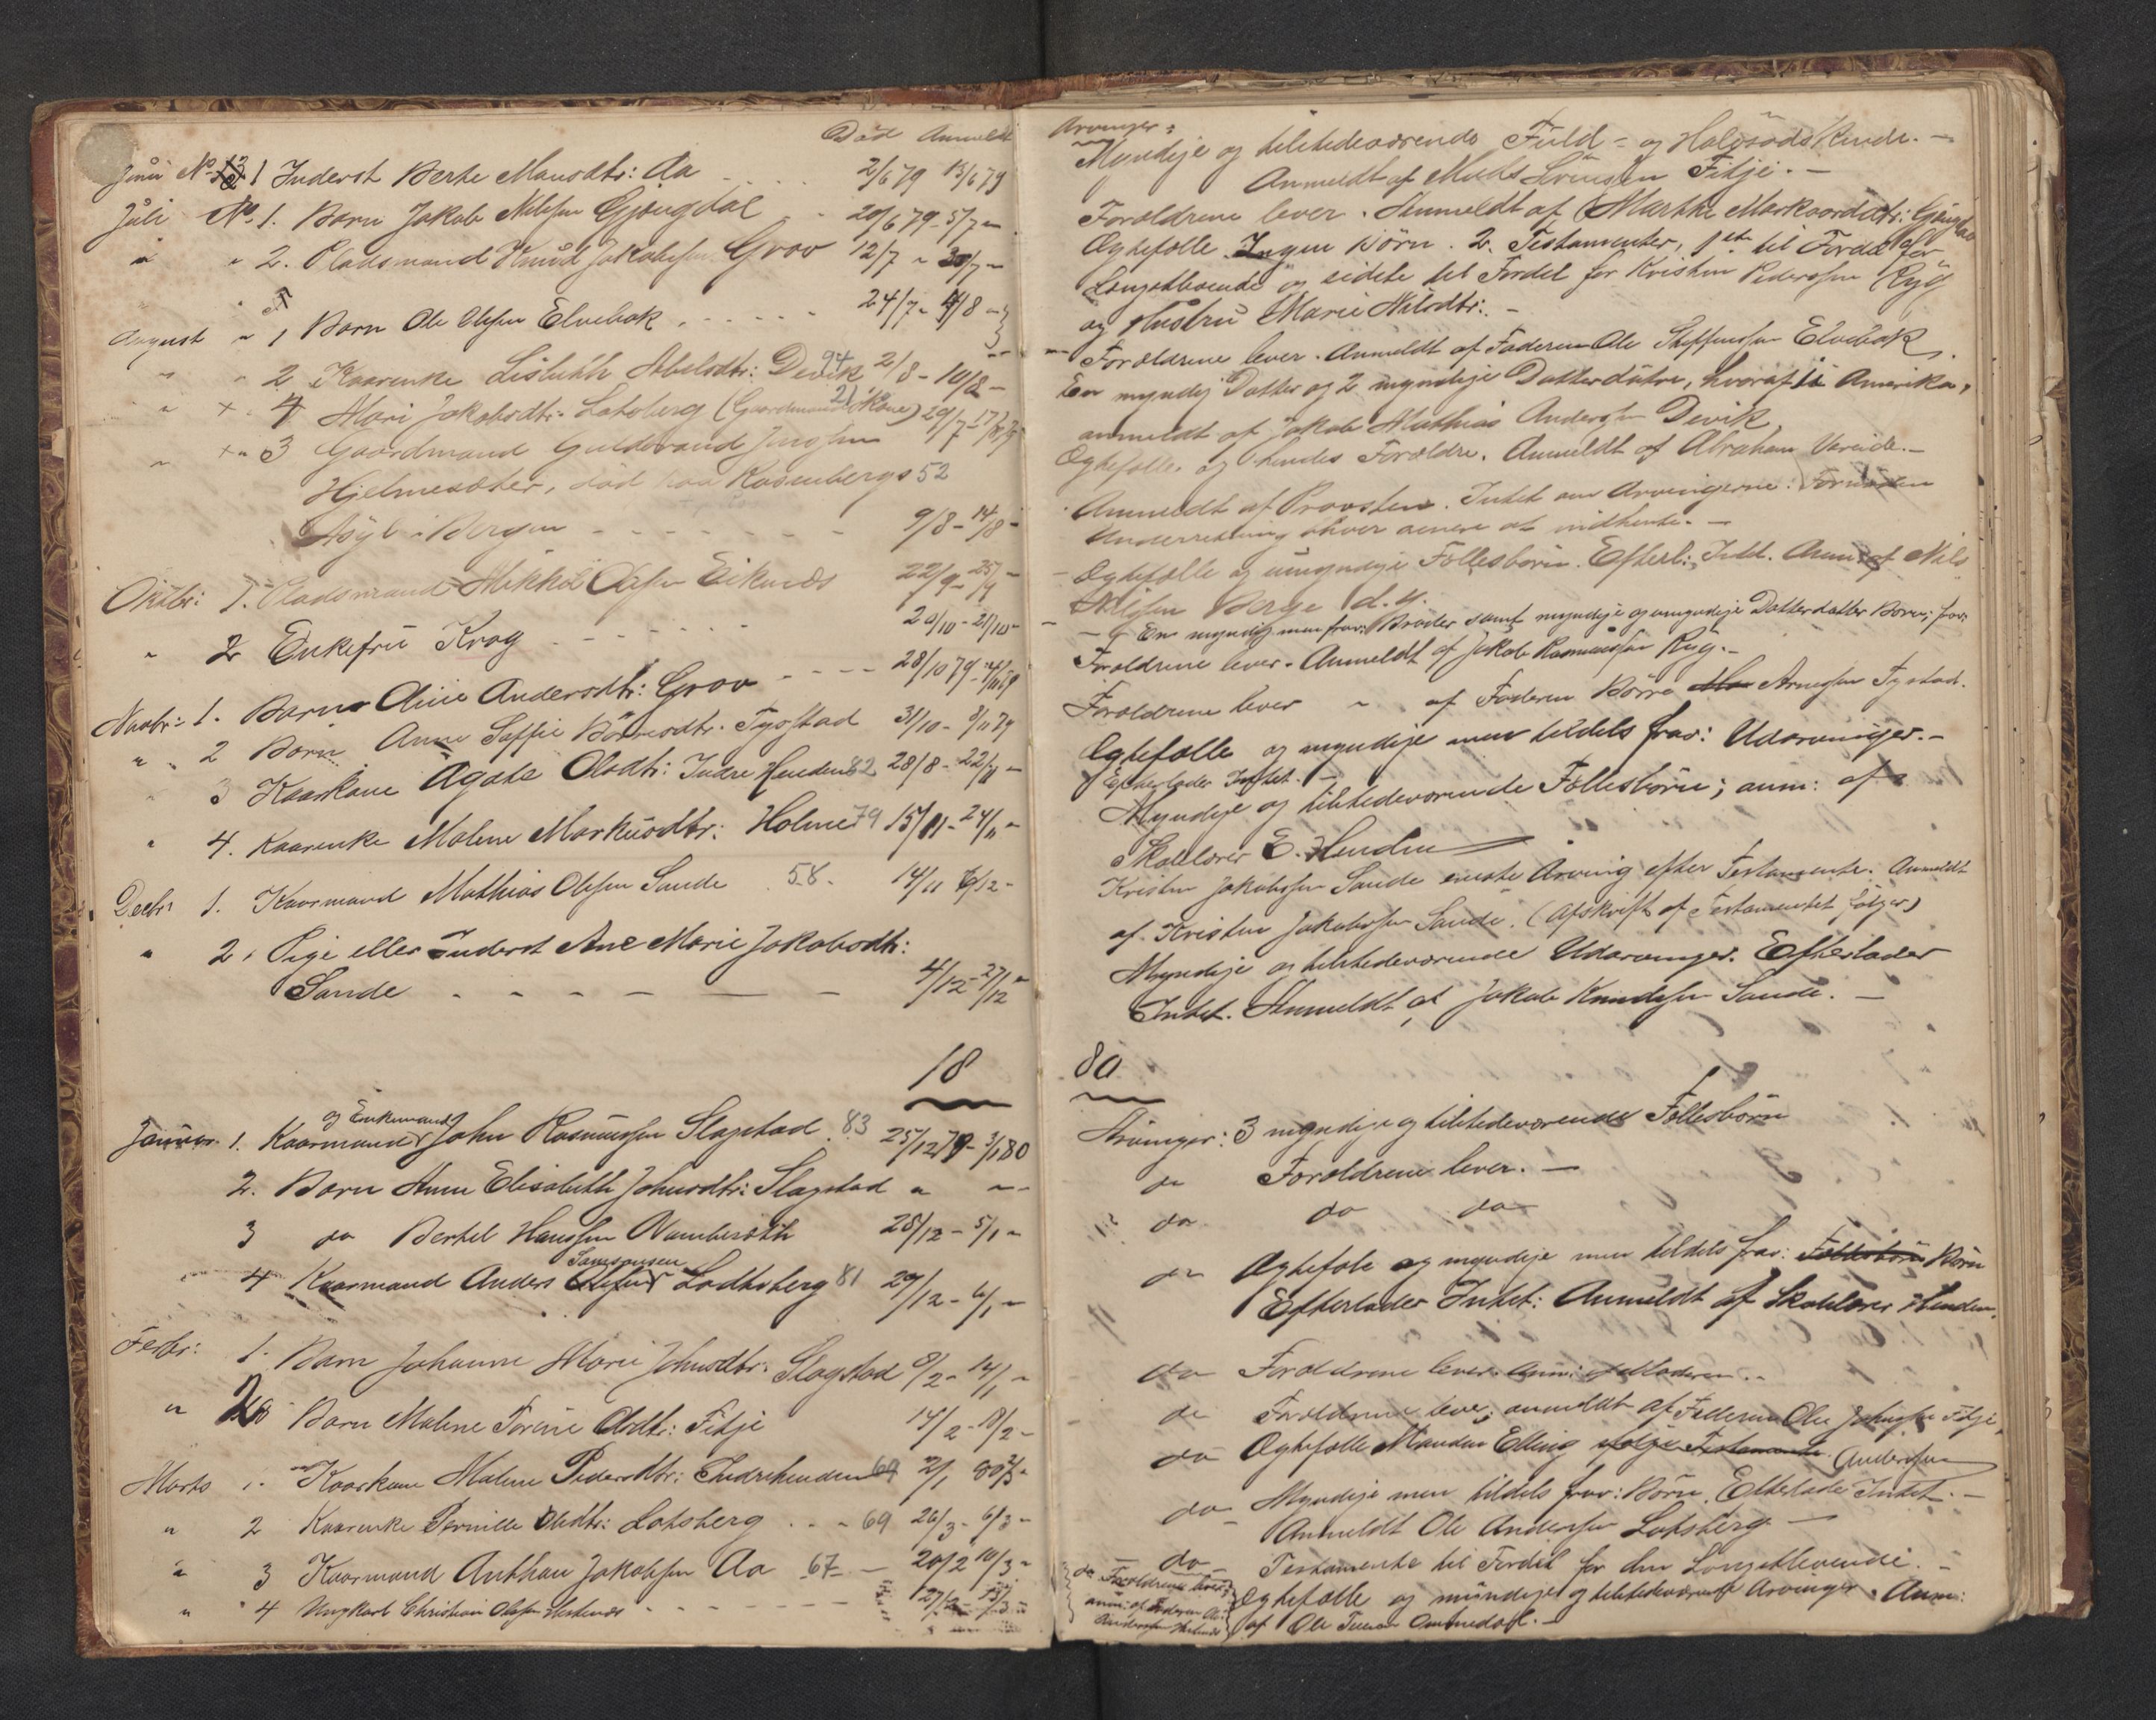 Död Anmeldt
Juni No 1 Inderst Berte Mansdtr: Aa . . . . 2/6 79 13/6 79
Juli No 1. Barn Jakob Nilssen Gjengdal - - 20/6 79 - 5/7 "
" " 2. Pladsmand Knud Jakobsen Grov 12/7 " 30/7 "
August " 1 Barn Ole Olsen Elvebak . - - - - - 24/7 - 4/8 -
" " 2 Kaarenke Lisbeth Abelsdtr: Devik 94 2/8 - 10/8 -
" + 4 Mari Jakobsdtr: Lotsberg (Gaardmandskone) 21 29/7 -
" + " 3 Gaardmand Guldbrand
Hjelmesæter, död paa Rosenbergs 52
Asyl i Bergen - - - - - - - 9/8 - 14/8 -
Oktbr: 1. Pladsmand Mikkel Olsen Eiknæs 22/9 - 25/9 "
" 2 Enkefru Krog - - - - - 20/10 - 21/10 -
Novbr: 1. Barn Oline Andersdtr: Grov - - - - 28/10 79 - 4/11 79
" " 2 Barn Anne Soffie Börresdtr: Tystad 31/10 - 8/11 79
" 3 Kaarkone Agate Olsdtr: Indre Henden 82 28/8 - 22/11 -
" 4. Kaarenke Malene Markusdtr: Holme 79 15/11 - 24/11 "
Decbr 1. Kaarmand Mathias Olsen Sande 58 - 14/11 6/12 -
" 2. Pige eller Inderst Ane Marie Jakobsdtr:
Sande - - - - - - 4/12 - 27/12 "
18
og Enkemand
Januar 1. Kaarmand John Rasmussen Slagstad 83 25/12 79 - 3/1 80
2. Barn Anne Elisabeth Johnsdtr: Slagstad " " -
3 do Bertel Hanssen 28/12 - 5/1 "
Samsonsen
4 Kaarmand Anders Olsen Lodtsberg 81 29/12 - 6/1 "
Febr: 1. Barn Johanne Marie Johnsdtr: Slagstad 8/2 - 14/1 -
" 2 Barn Malene Torine Olsdtr: Fitje 14/2 - 18/2 -
Marts 1. Kaarkone Malene Pedersdtr: Indrehenden 69 2/1 80
" 2 Kaarenke Pernille Olsdtr: Lotsberg . . - 69 26/3 - 6/3 -
" 3 Kaarmand Anthon Jakobsen Aa 67 - 20/2 10/3 -
" 4 Ungkarl Christian Olsen - - - - -
Arvinger:
Myndige og tilstedeværende Fuld- og Halvsødskende. -
Anmeldt af Mads Sörensen Fitje. -
Forældrene lever. Anmeldt af Marthe Markvardsdtr:
Ægtefælle. Ingen Börn. 2 Testamenter, 1ste til Fordel for
Længstlevende og sidste til Fordel for Kristen Pedersen Ryg
og Hustru Marie Nilsdtr: -
- Forældrene lever. Anmeldt af Faderen Ole Steffensen Elvebak.
En myndig Datter og 2 myndige Datterdøtre, hvoraf 1 i Amerika,
anmeldt af Jakob Mathias Andersen Devik
Ægtefælle og hendes Forældre. Anmeldt af Abraham Vereide. -
Anmeldt af Provsten. Intet om Arvingerne.
Underretning senere at indhente. -
- Ægtefælle og umyndige Fællesbörn. Efterl: Intet. Anm: af Nils
Nilsen Berge d. y.
- En myndig men frav: Broder samt myndige og umyndige Datterdatter Börn; frav:
Forældrene lever. Anmeldt af Jakob Rasmussen Ryg. -
Forældrene lever " af Faderen Börre Arnesen Tystad.
Ægtefælle og myndige men tildels frav: Udarvinger. -
Efterlader Intet. -
Myndige og tilstedeværende Fællesbörn; anm: af
Skolelærer E. Henden
Kristen Jakobsen Sande eneste Arving efter Testamente. Anmeldt
af Kristen Jakobsen Sande. (Afskrift af Testamentet følger)
Myndige og tilstedeværende Udarvinger. Efterlader
Intet. Anmeldt af Jakob Knudsen Sande. -
80
Arvinger: 3 myndige og tilstedeværende Fællesbörn
do Forældrene lever. -
do do do
do Ægtefæle og myndige men tildels frav: Fællesbörn Börn
Efterlader Intet: Anmeldt af Skolelærer Henden.
do Forældrene lever. Anm: af Moderen. -
do Forældrene lever, anmeldt af Faderen Ole Johnsen Fitje,
do Ægtefælle Manden Elling ifølge Testamente. Andersen
do Myndige men tildels frav: Börn. Efterlader Intet. -
Anmeldt Ole Andersen Lotsberg -
do Testamente til Fordel for den Længstlevende. -
Ægtefælle og myndige og tilstedeværende Arvinger. Anm:
af Ole Ommedal. -
do Forældrene lever,
anm: af Faderen Ole
Andersen